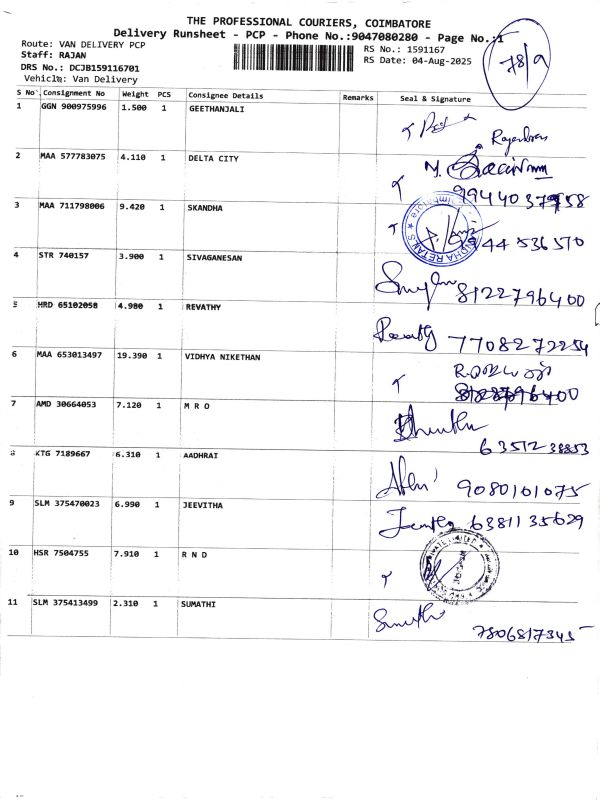 THE PROFESSIONAL COURIERS, COIMBATORE
Delivery Runsheet - PCP - Phone No.:9047080280 - Page No.:1
Route: VAN DELIVERY PCP
RS No.: 1591167
Staff: RAJAN
RS Date: 04-Aug-2025
78/9
DRS No.: DCJB159116701
Vehicle: Van Delivery
S No Consignment No Weight PCS Consignee Details Remarks Seal & Signature
1 GGN 900975996 1.500 1 GEETHANJALI
Rajendran
2 MAA 577783075 4.110 1 DELTA CITY
3 MAA 711798006 9.420 1 SKANDHA
944 536570
4 STR 740157 3.900 1 SIVAGANESAN
8122796400
5 HRD 65102058 4.980 1 REVATHY
Revathy 7708272254
6 MAA 653013497 19.390 1 VIDHYA NIKETHAN
7 AMD 30664053 7.120 1 M R O
63512 38853
8 KTG 7189667 6.310 1 AADHRAI
9080101075
9 SLM 375470023 6.990 1 JEEVITHA
6381135629
10 HSR 7504755 7.910 1 R N D
11 SLM 375413499 2.310 1 SUMATHI
Sumathi
7806817345